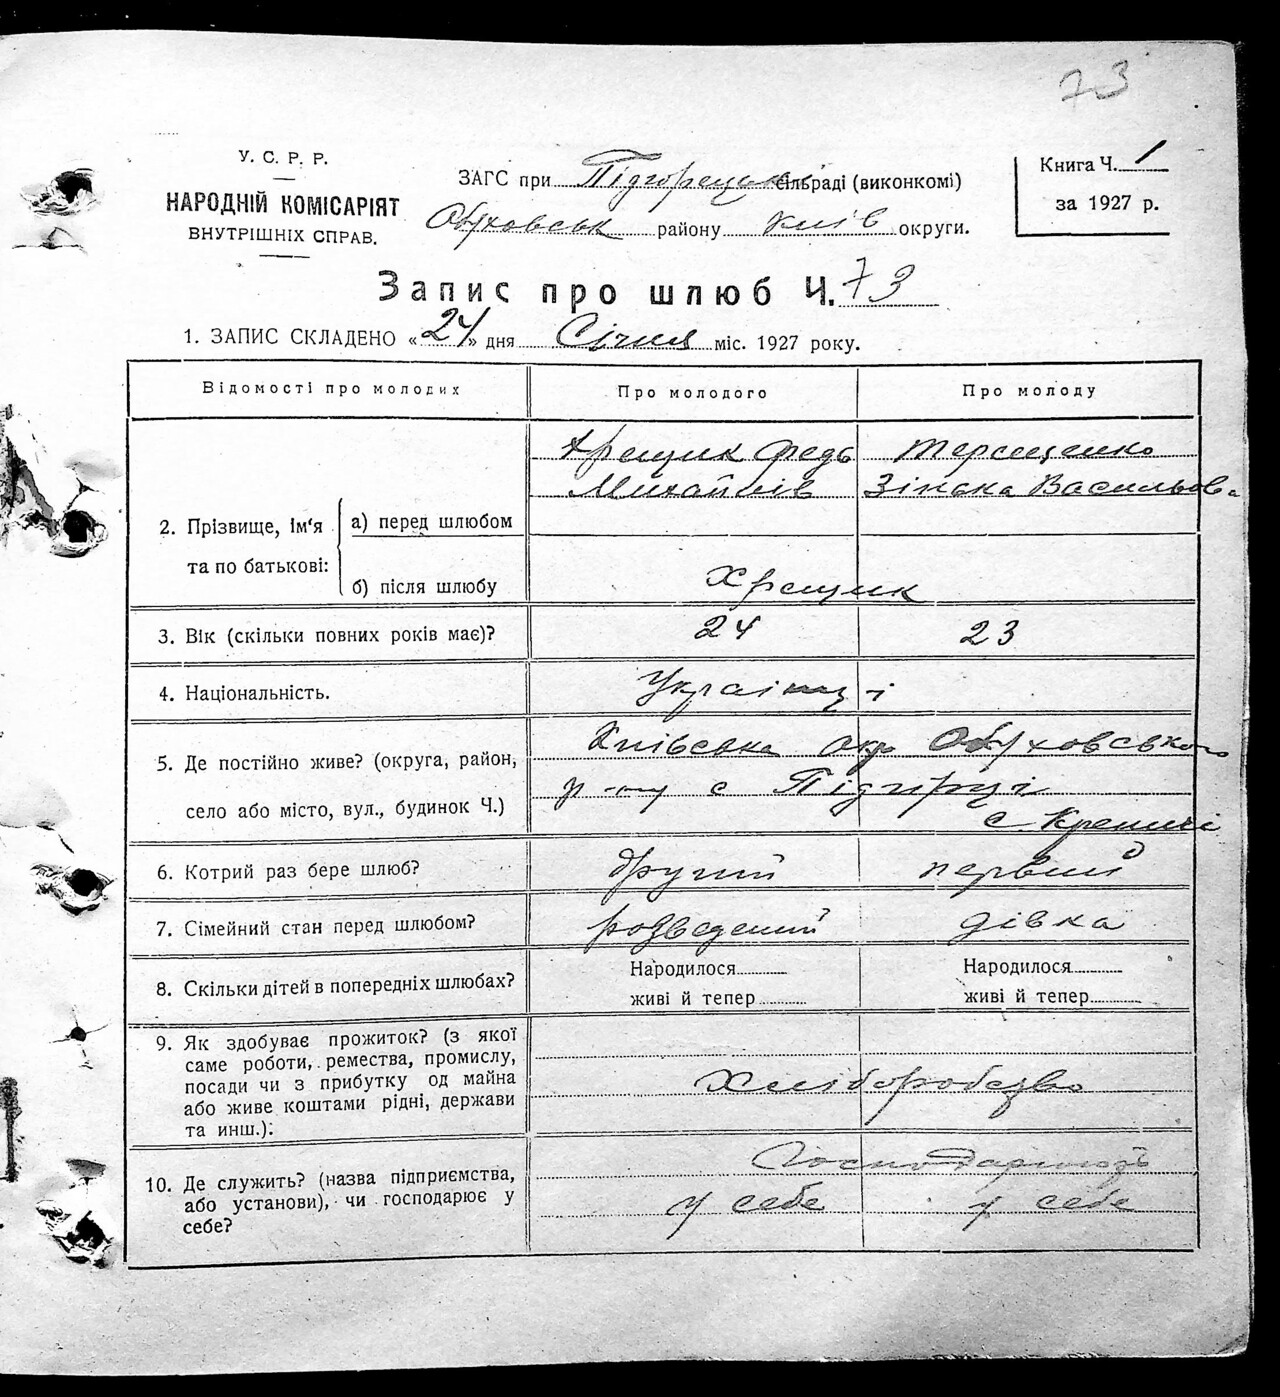 73
У. С. Р. Р.
НАРОДНІЙ КОМІСАРІЯТ
ВНУТРІШНІХ СПРАВ.
ЗАГС при Підгорецькій сільраді (виконкомі)
Обуховськ району Київ округи.
Книга Ч. 1
за 1927 р.
Запис про шлюб Ч. 73
1. ЗАПИС СКЛАДЕНО «24» дня Січня міс. 1927 року.
Відомості про молодих Про молодого Про молоду
2. Прізвище, ім'я та по батькові:
а) перед шлюбом
Хрещик Федь Терещенко
Михайлів Зінька Васильова
б) після шлюбу Хрещик
3. Вік (скільки повних років має)? 24 23
4. Національність. Українці
5. Де постійно живе? (округа, район,
село або місто, вул., будинок Ч.)
Київська окр Обуховського
р-ну с Підгірці
с. Креничі
6. Котрий раз бере шлюб? другий первий
7. Сімейний стан перед шлюбом? розведений дівка
8. Скільки дітей в попередніх шлюбах?
Народилося Народилося
живі й тепер живі й тепер
9. Як здобуває прожиток? (з якої
саме роботи, ремества, промислу,
посади чи з прибутку од майна
або живе коштами рідні, держави
та инш.):
Хліборобство
10. Де служить? (назва підприємства,
або установи), чи господарює у
себе?
у себе у себе